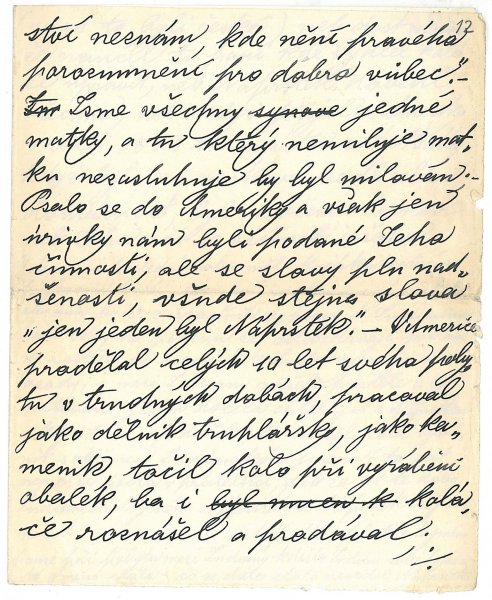 17
ství neznám, kde není pravého
porozumnění pro dobro vůbec."-
Jsme všechny synové jedné
matky, a tu který nemiluje mat-
ku nezasluhuje by byl milován.-
Psalo se do Ameriky a však jen
úrivky nám byli podané Jeho
činnosti, ale se slavy pln nad-
šenosti, všude stejna slova
"jen jeden byl Náprstek."- V Americe
pradělal celých 10 let svého poby-
tu v trudných dobách, pracoval
jako dělník truhlářsky, jako ka-
meník, točil kolo při vyrábění
obálek, ba i kolá-
če roznášel a prodával,